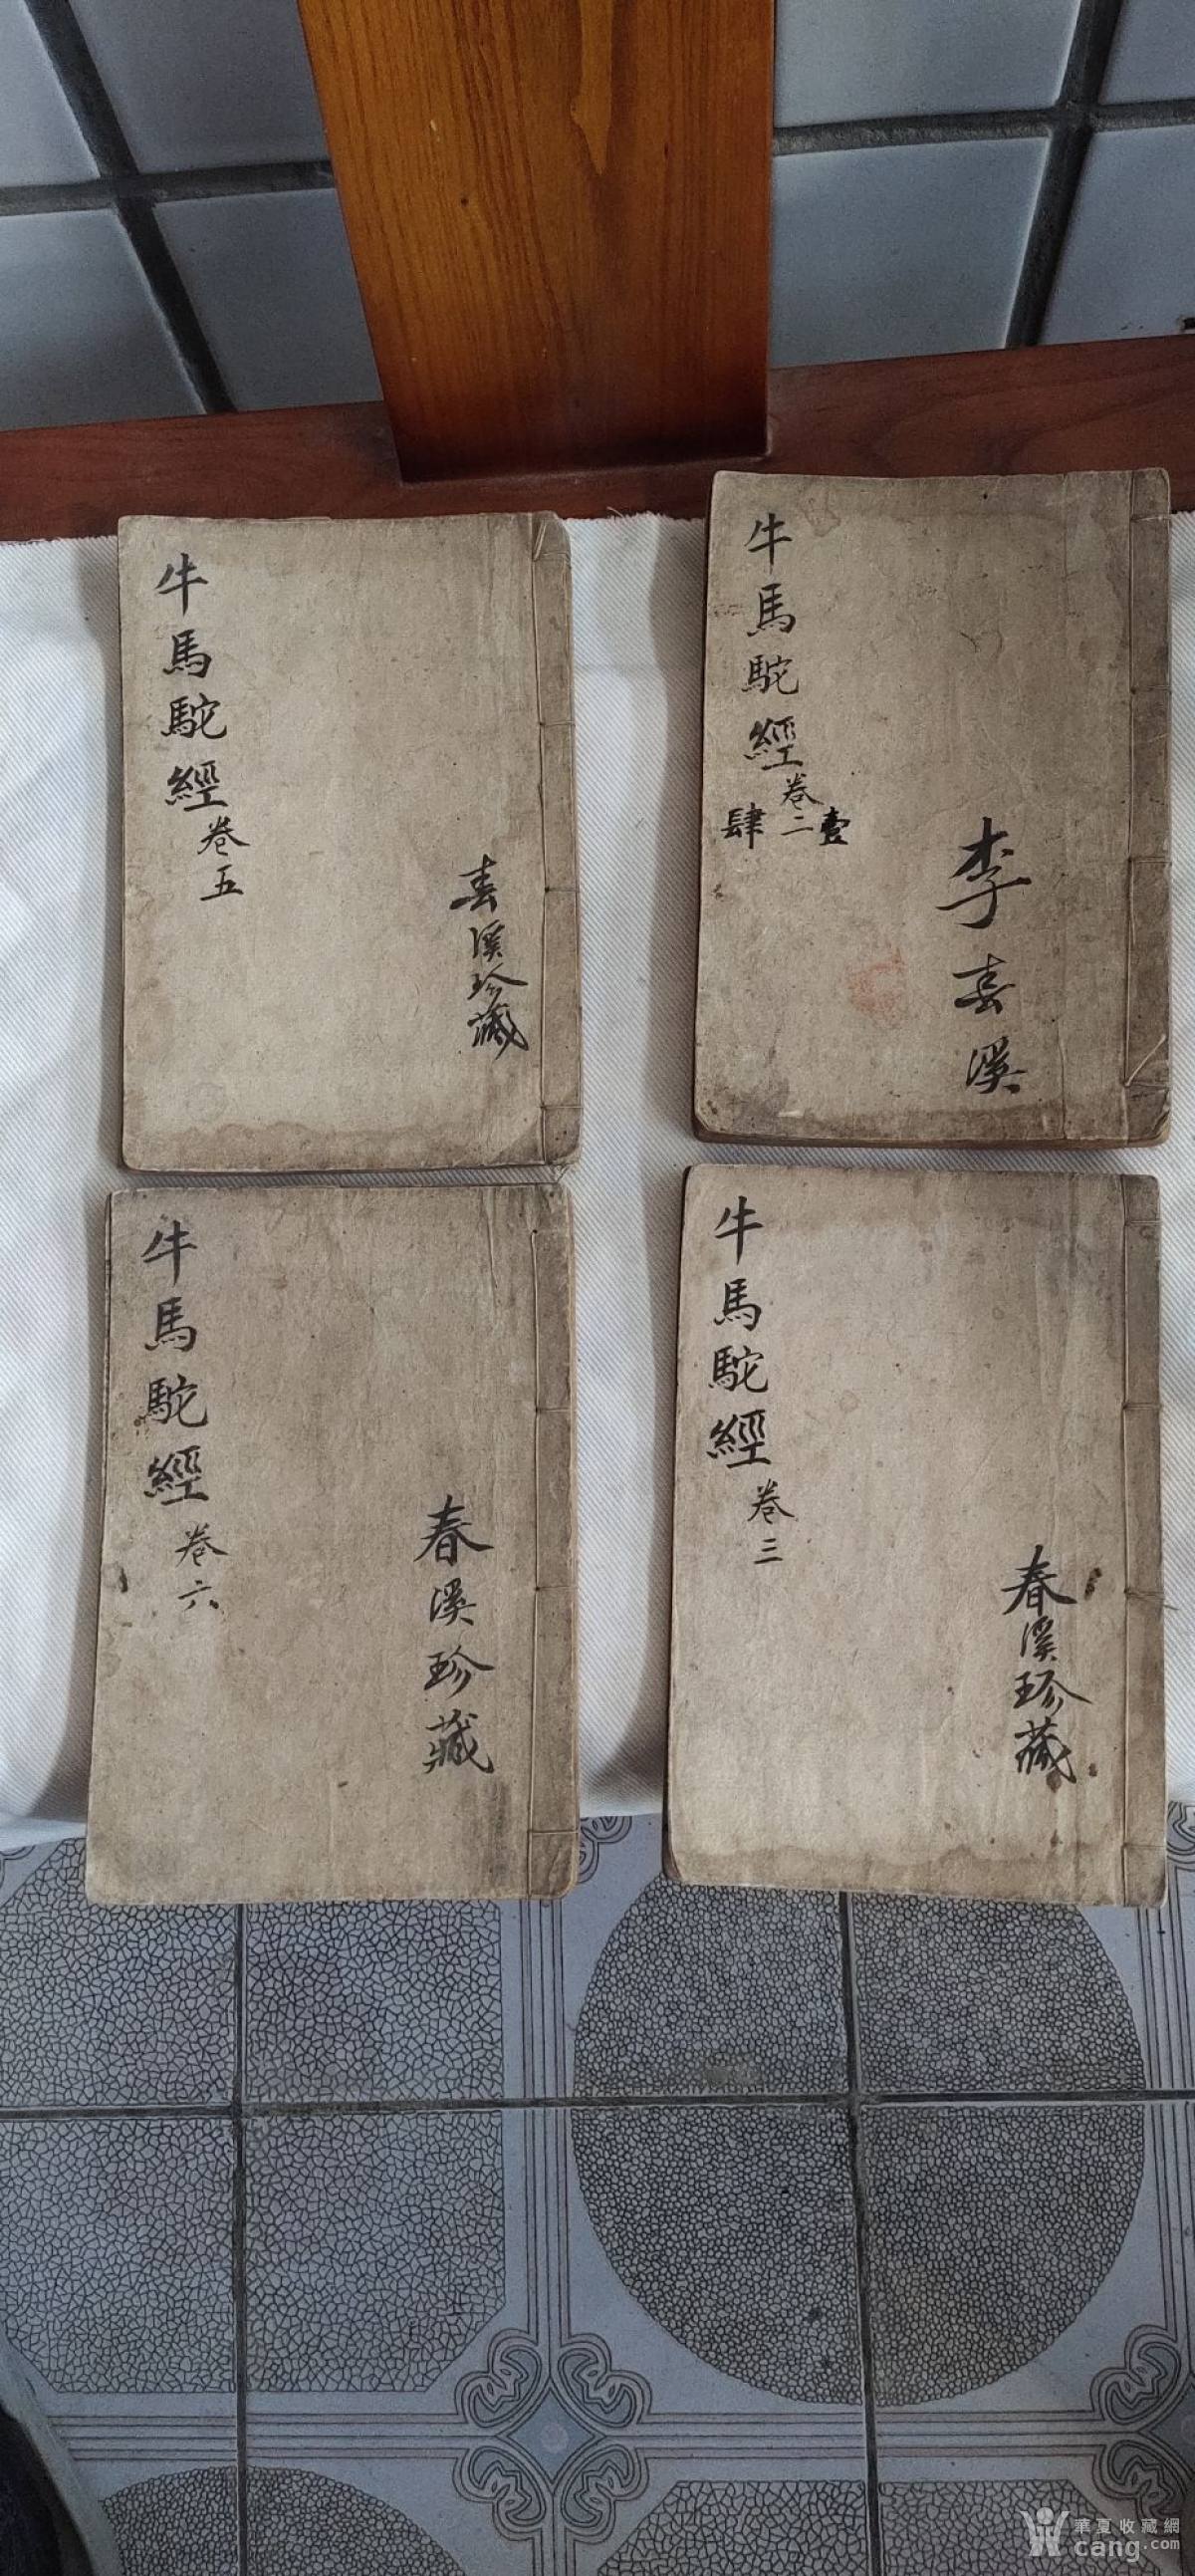 牛馬駝經
卷五
春溪珍藏
牛馬駝經
卷二
壹
肆
李春溪
牛馬駝經
卷六
春溪珍藏
牛馬駝經
卷三
春溪珍藏
華夏收藏網
cang.com